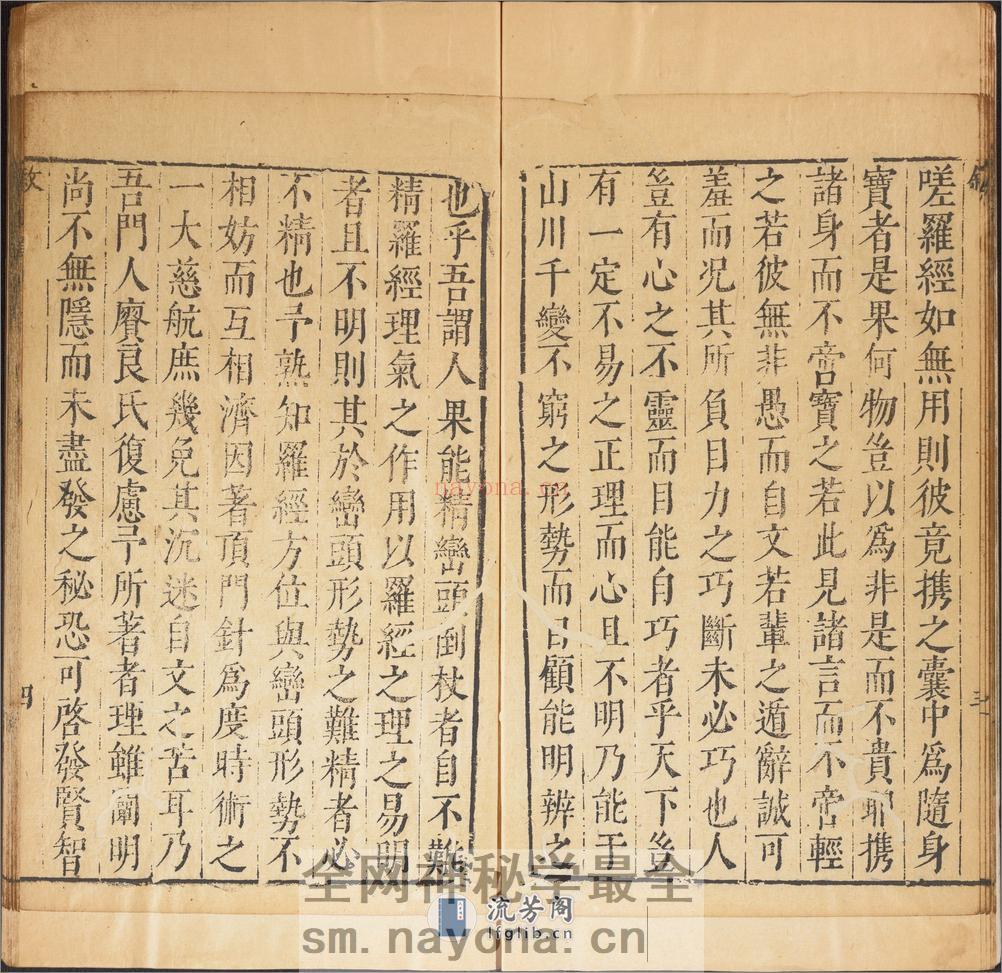 嗟羅經如無用則彼竟携之囊中爲隨身
寶者是果何物豈以爲非是而不貴耶携
諸身而不啻寶之若此見諸言而不啻輕
之若彼無非愚而自文若輩之遁辭誠可
羞而况其所負目力之巧斷未必巧也人
豈有心之不靈而目能自巧者乎天下豈
有一定不易之正理而心且不明乃能于
山川千變不窮之形勢而目顧能明辨之
也乎吾謂人果能精巒頭倒杖者自不難
精羅經理氣之作用以羅經之理之易明
者且不明則其於巒頭形勢之難精者必
不精也予熟知羅經方位與巒頭形勢不
相妨而互相濟因著頂門針爲度時術之
一大慈航庶幾免其沉迷自文之苦耳乃
吾門人賡良氏復慮予所著者理雖闡明
尚不無隱而未盡發之秘恐可啓發賢智
三
四
nayona.cn
全网神秘学最全
流芳阁
lfglib.cn
sm.nayona.cn